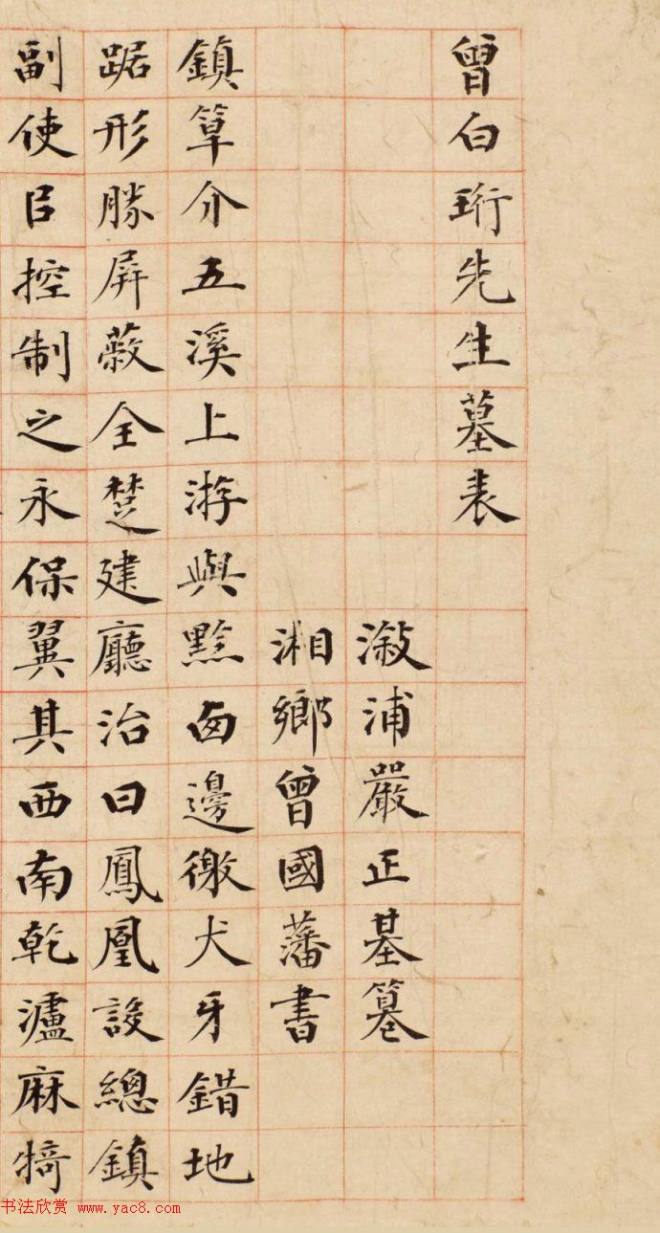 曾白珩先生墓表
漵浦嚴正基
湘鄉曾國藩書
鎮筸介五溪上游與黔卥邊徼犬牙錯地
踞形勝屏蔽全楚建廳治曰鳳凰設總鎮
副使臣控制之永保翼其西南乾瀘麻犄
书法欣赏 www.yac8.com